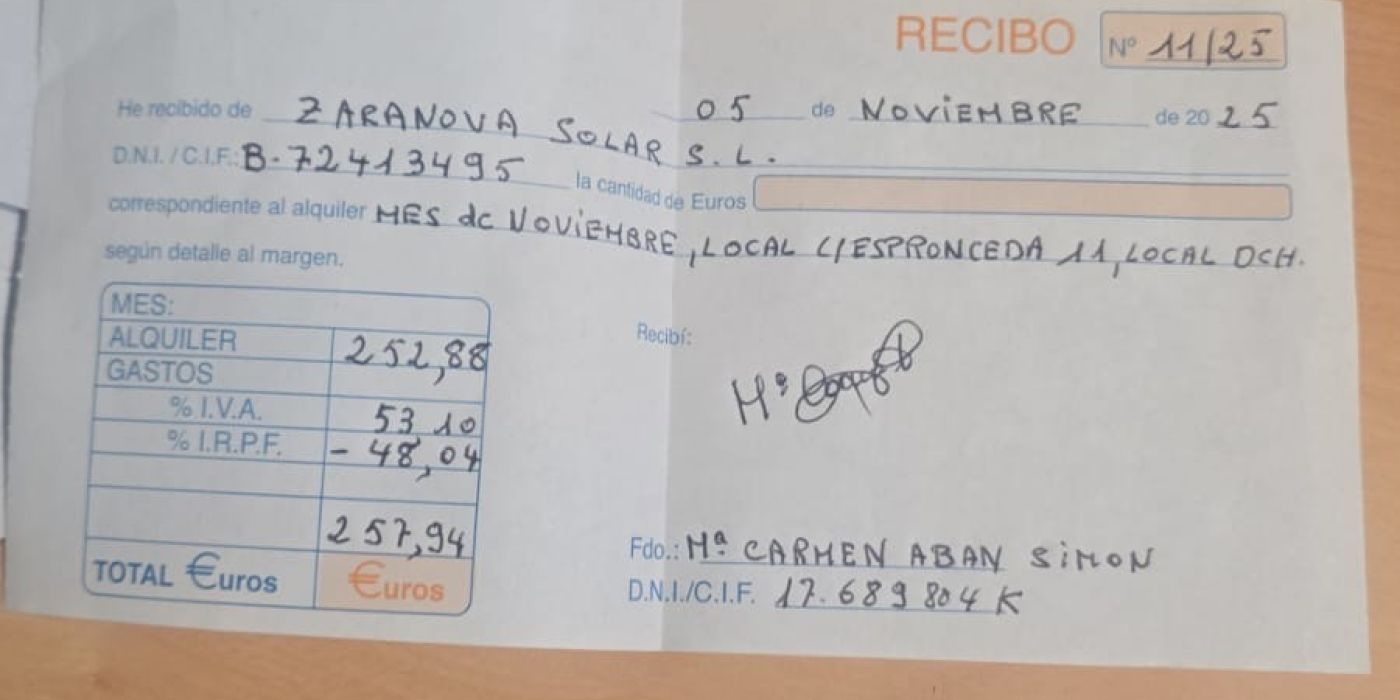 RECIBO Nº 11/25
He recibido de ZARANOVA SOLAR S.L. 05 de NOViEMBRE de 2025
D.N.I. / C.I.F.: B-72413495 la cantidad de Euros
correspondiente al alquiler MES de NOViEMBRE, LOCAL C/ESPRONCEDA 11, LOCAL DCH.
según detalle al margen.
MES:
ALQUILER 252,88
GASTOS
% I.V.A. 53 10
% I.R.P.F. - 48,04
257,94
TOTAL €uros €uros
Recibí:
Mª
Fdo.: Mª CARMEN ABAN SiMON
D.N.I./C.I.F. 17.689 804 K